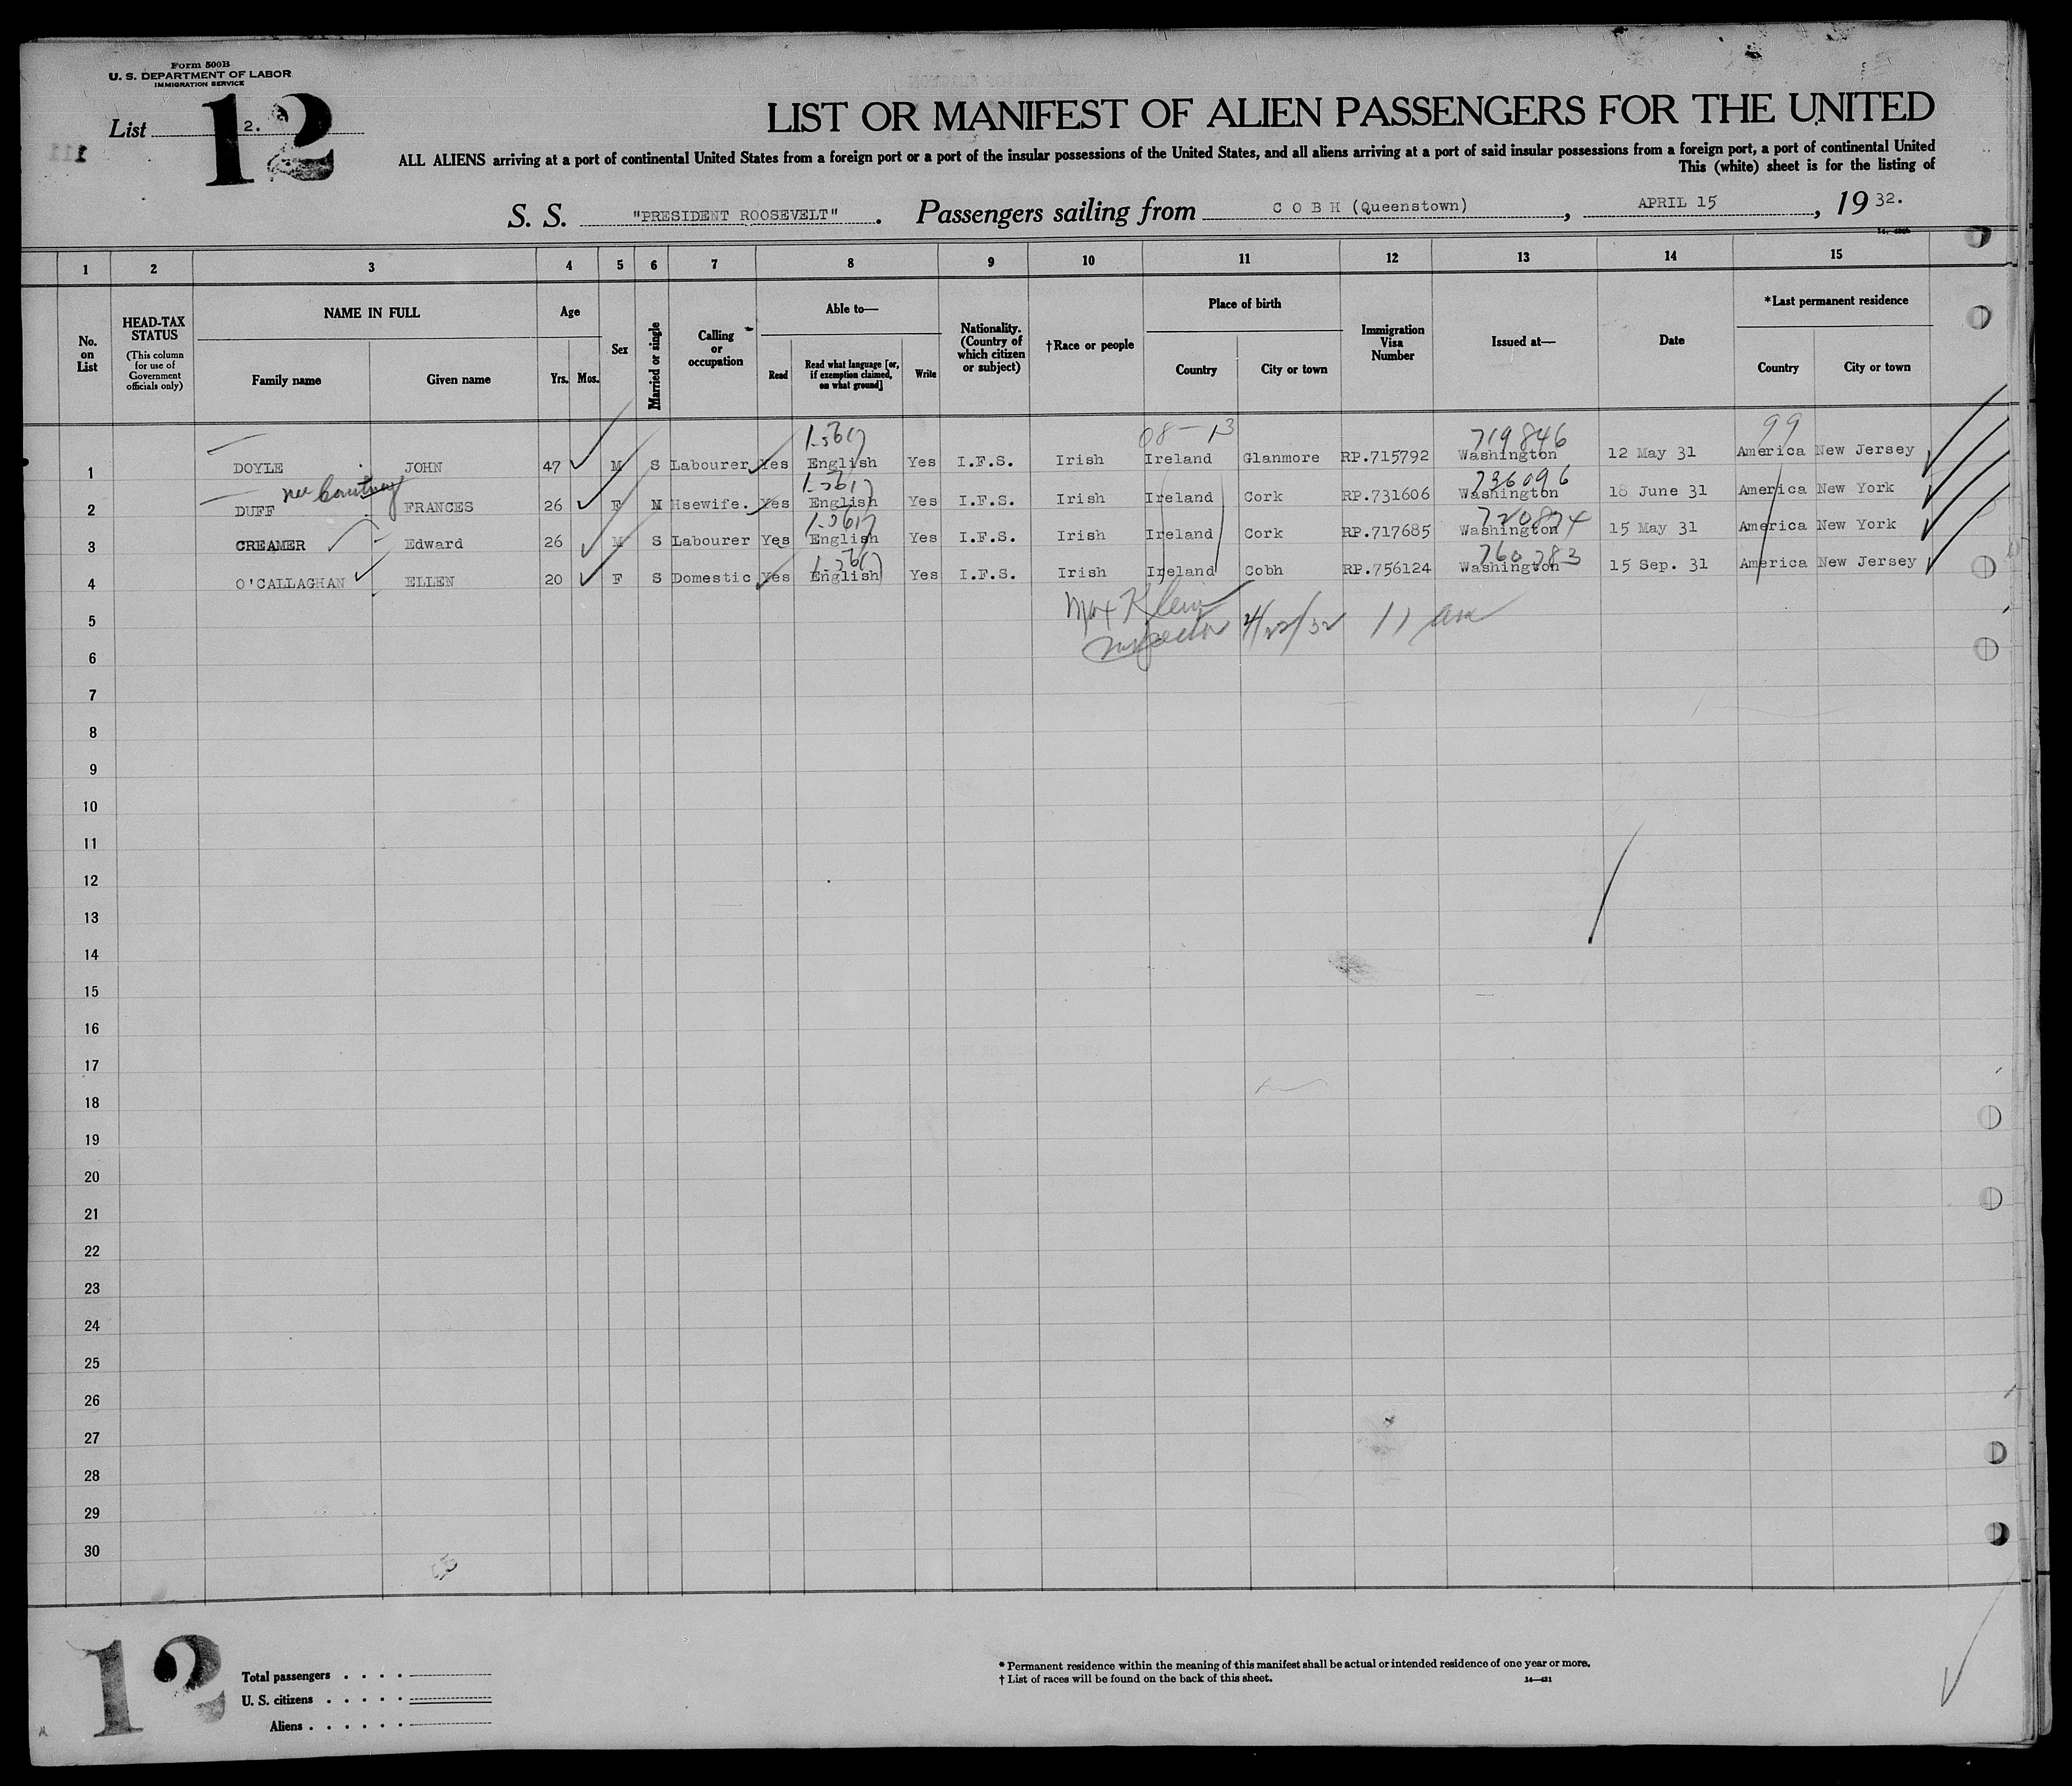 Form 500B
U. S. DEPARTMENT OF LABOR
IMMIGRATION SERVICE
List 2.
12
111
LIST OR MANIFEST OF ALIEN PASSENGERS FOR THE UNITED
ALL ALIENS arriving at a port of continental United States from a foreign port or a port of the insular possessions of the United States, and all aliens arriving at a port of said insular possessions from a foreign port, a port of continental United
This (white) sheet is for the listing of
S. S. "PRESIDENT ROOSEVELT" . Passengers sailing from C O B H (Queenstown) , APRIL 15 , 19 32.
1 2 3 4 5 6 7 8 9 10 11 12 13 14 15
No. on List
HEAD-TAX STATUS
(This column for use of Government officials only)
NAME IN FULL
Family name Given name
Age
Yrs. Mos.
Sex
Married or single
Calling or occupation
Able to—
Read Read what language [or, if exemption claimed, on what ground] Write
Nationality. (Country of which citizen or subject)
†Race or people
Place of birth
Country City or town
Immigration Visa Number
Issued at—
Date
*Last permanent residence
Country City or town
08-13 719846 99
1 DOYLE JOHN 47 M S Labourer Yes English Yes I.F.S. Irish Ireland Glanmore RP.715792 Washington 12 May 31 America New Jersey
nee Courtney 736096
2 DUFF FRANCES 26 F M Hsewife. Yes English Yes I.F.S. Irish Ireland Cork RP.731606 Washington 18 June 31 America New York
720874
3 CREAMER Edward 26 M S Labourer Yes English Yes I.F.S. Irish Ireland Cork RP.717685 Washington 15 May 31 America New York
760783
4 O'CALLAGHAN ELLEN 20 F S Domestic Yes English Yes I.F.S. Irish Ireland Cobh RP.756124 Washington 15 Sep. 31 America New Jersey
5 Max Klein
Inspector 4/22/32 11 am
6
7
8
9
10
11
12
13
14
15
16
17
18
19
20
21
22
23
24
25
26
27
28
29
30
12
Total passengers . . . .
U. S. citizens . . . . .
Aliens . . . . . .
* Permanent residence within the meaning of this manifest shall be actual or intended residence of one year or more.
† List of races will be found on the back of this sheet. 14—431